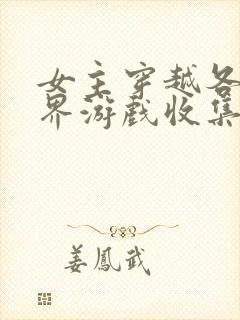 女主穿越各
界游戏收集
姜鳳武